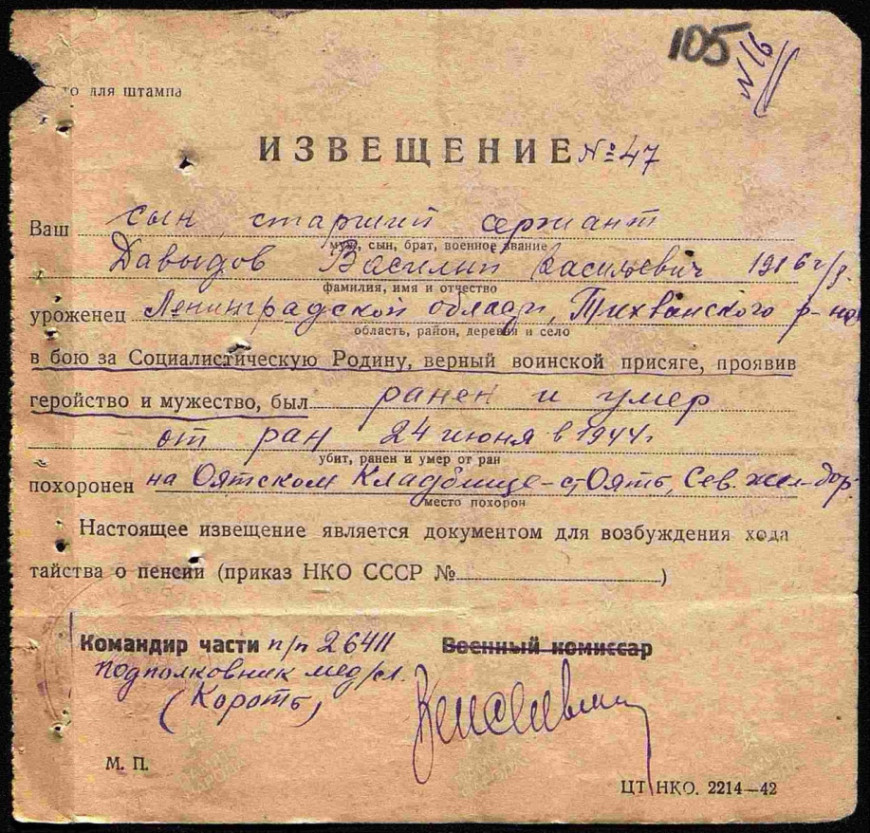 105 N 16
то для штампа
ИЗВЕЩЕНИЕ № 47
Ваш сын, старший сержант
муж, сын, брат, военное звание
Давыдов Василий Васильевич 1916 г/р.
фамилия, имя и отчество
уроженец Ленинградской области, Тихвинского р-на
область, район, деревня и село
в бою за Социалистическую Родину, верный воинской присяге, проявив
геройство и мужество, был ранен и умер
от ран 24 июня в 1944г.
убит, ранен и умер от ран
похоронен на Оятском Кладбище - ст. Оять, Сев. жел-дор.
место похорон
Настоящее извещение является документом для возбуждения хода
тайства о пенсии (приказ НКО СССР № )
Командир части п/п 26411 Военный комиссар
подполковник мед/сл.
(Короть)
М. П.
ЦТ НКО. 2214—42